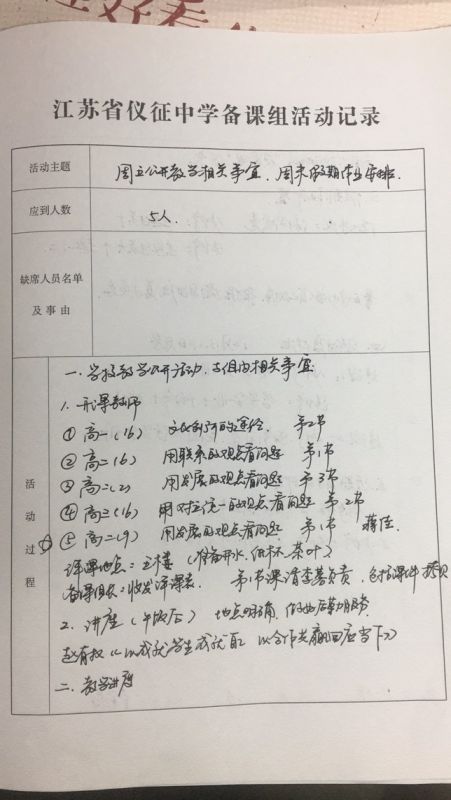 江苏省仪征中学备课组活动记录
活动主题
周五公开教学相关事宜、周末假期作业安排.
应到人数
5人.
缺席人员名单
及事由
活动过程
一. 学校教学公开活动,本组内相关事宜
1. 开课教师
① 高一(16) 文化创新的途径. 第2节
② 高二(6) 用联系的观点看问题 第1节
③ 高二(2) 用发展的观点看问题 第3节
④ 高三(16) 用对立统一的观点看问题 第2节
⑤ 高二(9) 用发展的观点看问题 第1节 蒋佳.
评课地点:三楼 (准备开水、纸杯、茶叶)
备课组长:收发评课表. 第1节课请 负责,包括课件拷贝
2. 讲座(午饭后) 地点明确, 做好后勤服务
赵有权《以成就学生成就自己 以合作共赢回应当下》
二. 教学进度